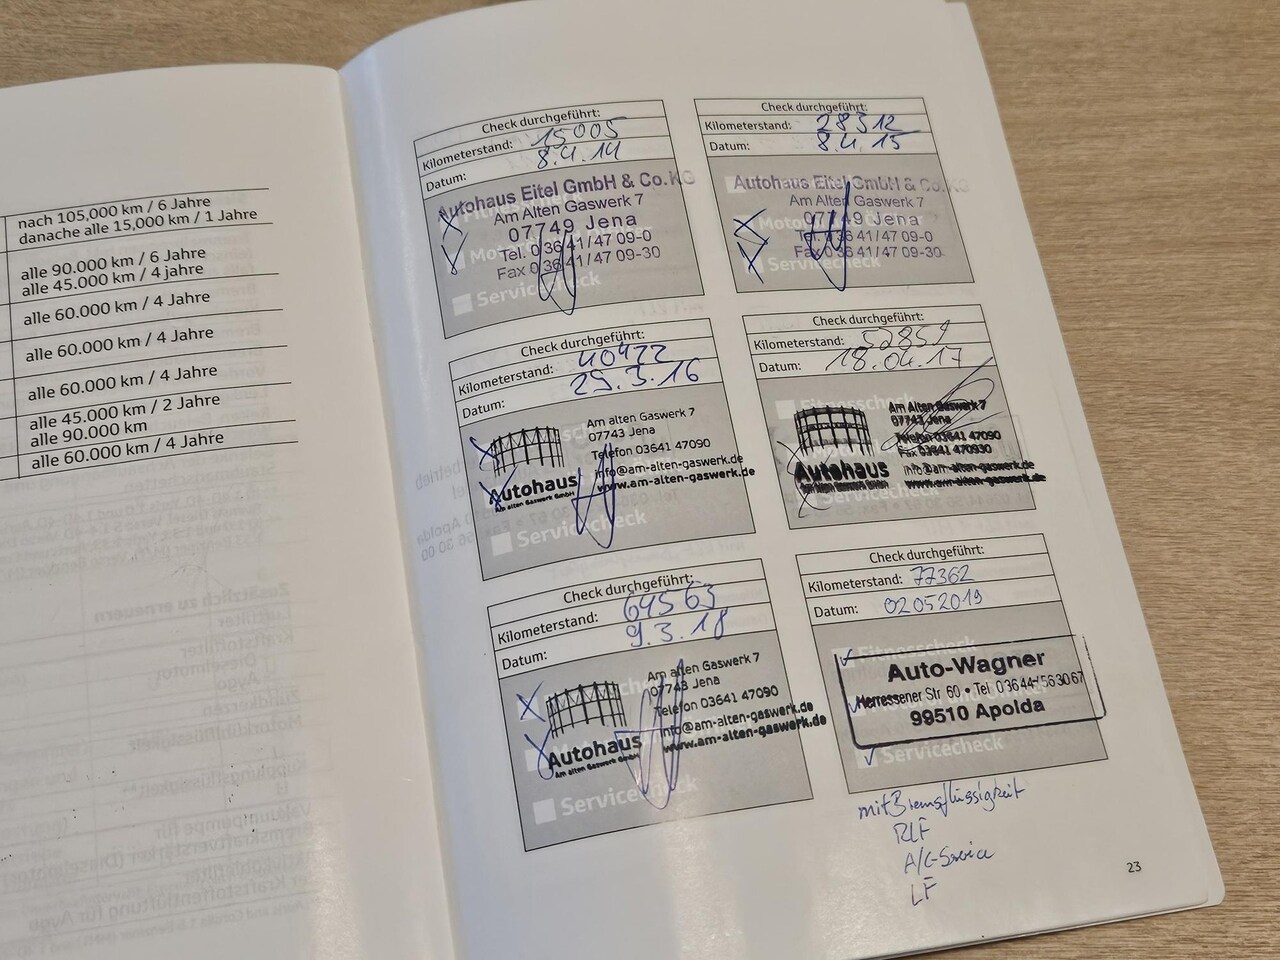 nach 105,000 km / 6 Jahre
danache alle 15,000 km / 1 Jahre
alle 90.000 km / 6 Jahre
alle 45.000 km / 4 jahre
alle 60.000 km / 4 Jahre
alle 60.000 km / 4 Jahre
alle 60.000 km / 4 Jahre
alle 45.000 km / 2 Jahre
alle 90.000 km
alle 60.000 km / 4 Jahre
Check durchgeführt:
Kilometerstand: 15005
Datum: 8.4.14
Autohaus Eitel GmbH & Co. KG
Am Alten Gaswerk 7
07749 Jena
Tel. 0 36 41 / 47 09-0
Fax 0 36 41 / 47 09-30
Servicecheck
Check durchgeführt:
Kilometerstand: 28312
Datum: 8.4.15
Autohaus Eitel GmbH & Co. KG
Am Alten Gaswerk 7
07749 Jena
Tel. 0 36 41 / 47 09-0
Fax 0 36 41 / 47 09-30
Servicecheck
Check durchgeführt:
Kilometerstand: 40422
Datum: 29.3.16
Am alten Gaswerk 7
07743 Jena
Telefon 03641 47090
info@am-alten-gaswerk.de
www.am-alten-gaswerk.de
Autohaus
Am alten Gaswerk GmbH
Servicecheck
Check durchgeführt:
Kilometerstand: 52859
Datum: 18.04.17
Fitnesscheck
Am Alten Gaswerk 7
07743 Jena
Telefon 03641 47090
Fax 03641 470930
info@am-alten-gaswerk.de
www.am-alten-gaswerk.de
Autohaus
Servicecheck
Check durchgeführt:
Kilometerstand: 64563
Datum: 9.3.18
Am alten Gaswerk 7
07743 Jena
Telefon 03641 47090
info@am-alten-gaswerk.de
www.am-alten-gaswerk.de
Autohaus
Am alten Gaswerk GmbH
Servicecheck
Check durchgeführt:
Kilometerstand: 77362
Datum: 02052019
Fitnesscheck
Auto-Wagner
Herressener Str 60 • Tel 03644-563067
99510 Apolda
Servicecheck
mit Bremsflüssigkeit
RLF
A/C-Service
LF
23